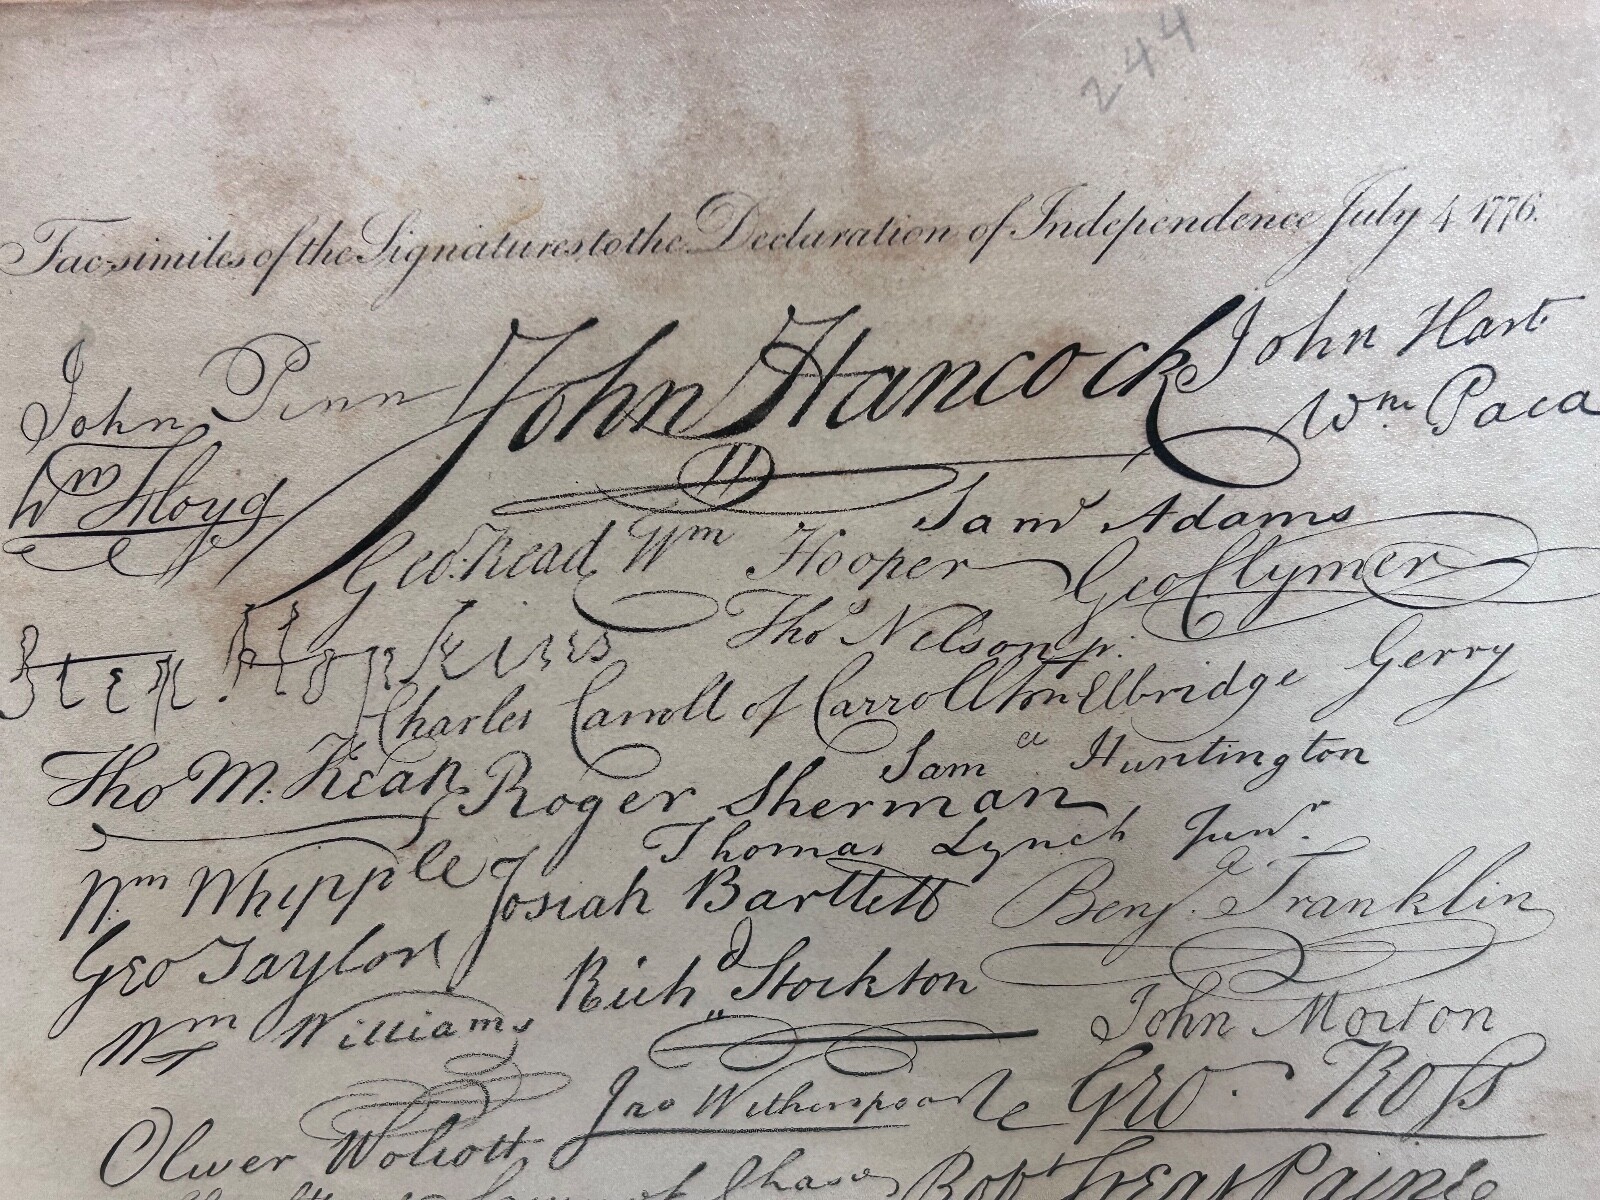 244
Fac-similes of the Signatures to the Declaration of Independence July 4 1776.
John Penn John Hancock John Hart
Wm Floyd Wm Paca
Geo. Read Wm Hooper Saml Adams
Step Hopkins Thos Nelson jr. Geo Clymer
Charles Carroll of Carrollton Elbridge Gerry
Tho M. Kean Roger Sherman Saml Huntington
Thomas Lynch Junr.
Wm Whipple Josiah Bartlett Benja. Franklin
Geo Taylor Richd Stockton
Wm Williams John Morton
Jno Witherspoon Geo. Ross
Oliver Wolcott
Chase Robt Treat Paine